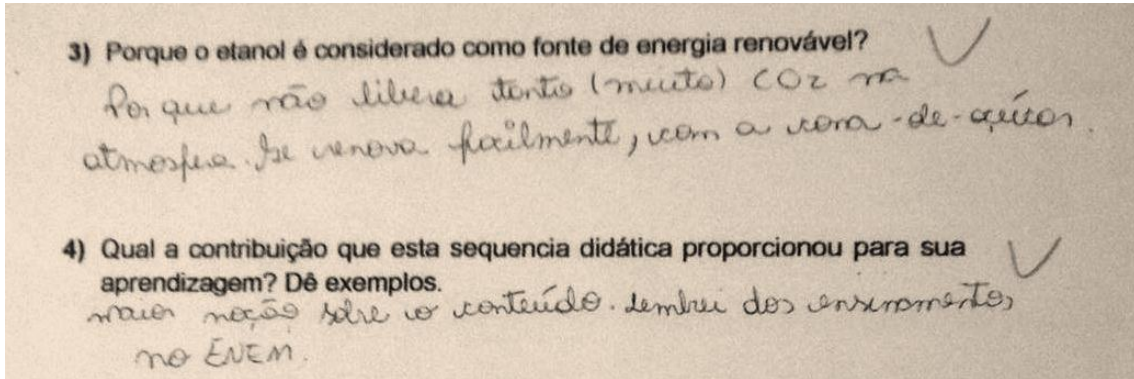 3) Porque o etanol é considerado como fonte de energia renovável?
Por que não libera tanto (muito) CO2 na
atmosfera. Se renova facilmente, com a cana-de-açúcar.
4) Qual a contribuição que esta sequencia didática proporcionou para sua
aprendizagem? Dê exemplos.
maior noção sobre o conteúdo. Lembrei dos ensinamentos
no ENEM.